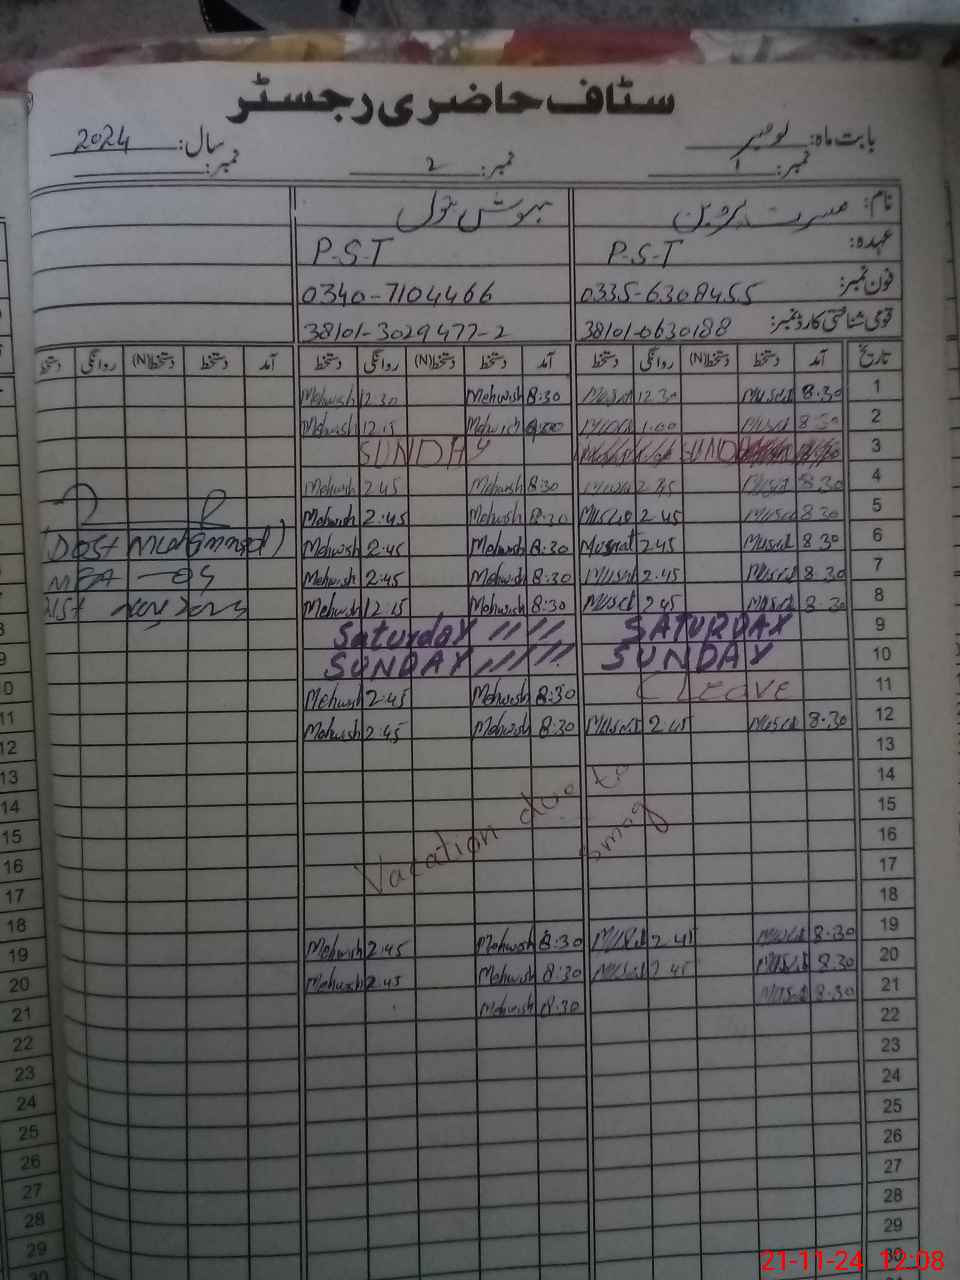 سٹاف حاضری رجسٹر
بابت ماہ: نومبر سال: 2024
نمبر: 1 نمبر: 2 نمبر:
نام: مسرت پروین مہوش بتول
عہدہ: P-S-T P-S-T
فون نمبر: 0335-6308455 0340-7104466
قومی شناختی کارڈ نمبر: 38101-0630188 38101-3029477-2
تاریخ آمد دستخط دستخط(N) روانگی دستخط آمد دستخط دستخط(N) روانگی دستخط آمد دستخط دستخط(N) روانگی دستخط
1 8.30 12.30 8:30 Mehwish 12.30 Mehwish
2 8.30 1.00 Mehwish 12.15 Mehwish
3 SUNDAY SUNDAY
4 8.30 2.45 8:30 Mehwish 2.45 Mehwish
5 8.30 2.45 8:30 Mehwish 2:45 Mehwish
6 8.30 Musrat 2.45 8:30 Mehwish 2:45 Mehwish
7 8.30 2.45 8:30 Mehwish 2:45 Mehwish
8 8.30 2.45 8:30 Mehwish 12.15 Mehwish
9 SATURDAY Saturday
10 SUNDAY SUNDAY
11 LEAVE 8:30 Mehwish 2:45 Mehwish
12 8.30 2.45 8:30 Mehwish 2:45 Mehwish
13
14
15
16
17
18
Vacation due to
Smog
19 8.30 2.45 8:30 Mehwish 2:45 Mehwish
20 8.30 2.45 8:30 Mehwish 2:45 Mehwish
21 8.30 8:30 Mehwish
22
23
24
25
26
27
28
29
30
Dost Muhammad
MEA
8
9
10
11
12
13
14
15
16
17
18
19
20
21
22
23
24
25
26
27
28
29
30
21-11-24 12:08